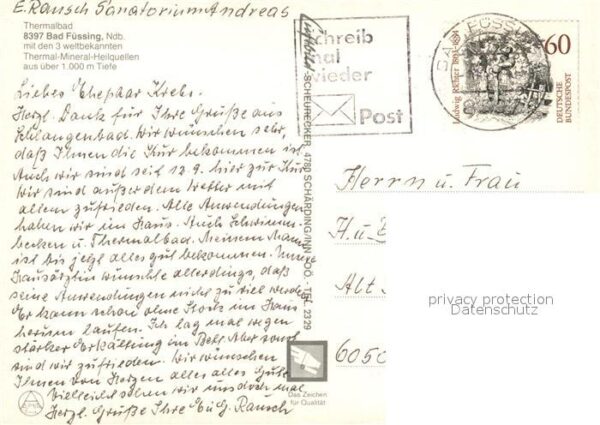 E. Rausch Sanatorium Andreas
Thermalbad
8397 Bad Füssing, Ndb.
mit den 3 weltbekannten
Thermal-Mineral-Heilquellen
aus über 1.000 m Tiefe
Liebes Ehepaar Krebs.
Herzl. Dank für Ihre Grüße aus
Schlangenbad. Wir wünschen sehr,
daß Ihnen die Kur bekommen ist
Auch wir sind seit 12.9. hier zur Kur
Wir sind außer dem Wetter mit
allem zufrieden. Alle Anwendungen
haben wir im Haus. Auch Schwimm-
becken u. Thermalbad. Meinem Mann
ist bis jetzt alles gut bekommen. Unsere
Hausärztin wünschte allerdings, daß
seine Anwendungen nicht zu viel werden
Er kann schon ohne Stock im Haus
herum laufen. Ich lag mal wegen
starker Erkältung im Bett. Aber sonst
sind wir zufrieden. Wir wünschen
Ihnen von Herzen alles alles Gute
Vielleicht sehen wir uns doch mal
Herzl. Grüße Ihre E. u. G. Rausch
SCHEURECKER, 4780 SCHÄRDING/INN, OÖ. TEL. 2329
Das Zeichen
für Qualität
schreib
mal
wieder
Post
BAD FÜSSING
Ludwig Richter 1803-1884
60
DEUTSCHE
BUNDESPOST
Herrn u. Frau
H. u. E
Alt
6050
privacy protection
Datenschutz